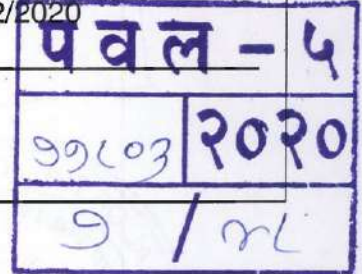 2/2020
पवल - ५
११८०३ २०२०
१ /